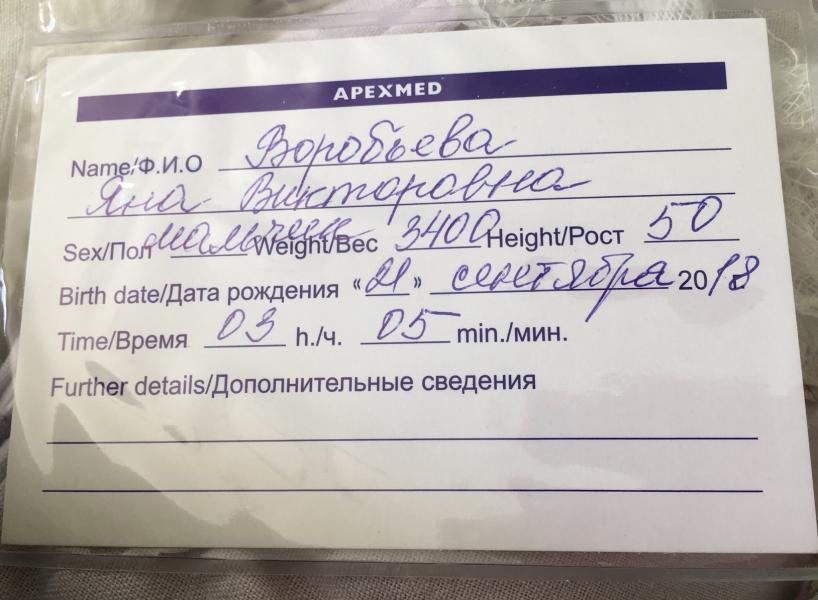 APEXMED
Name/Ф.И.О Воробьева
Яна Викторовна
Sex/Пол мальчик Weight/Вес 3400 Height/Рост 50
Birth date/Дата рождения « 21 » сентября 2018
Time/Время 03 h./ч. 05 min./мин.
Further details/Дополнительные сведения